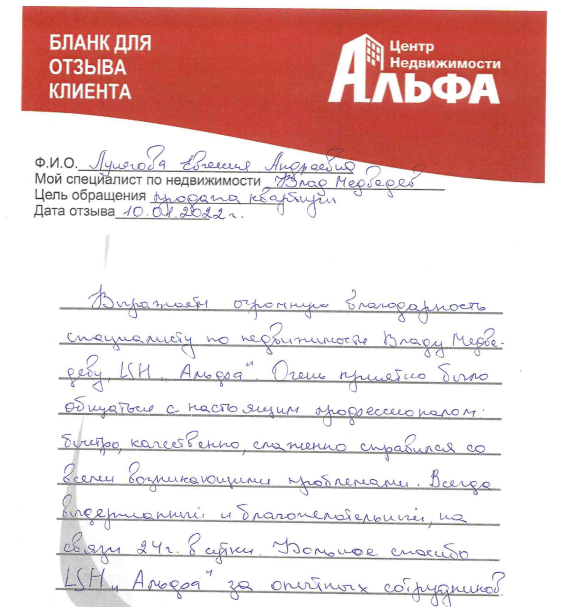 БЛАНК ДЛЯ
ОТЗЫВА
КЛИЕНТА
Центр
Недвижимости
АЛЬФА
Ф.И.О. Евгения Андреевна
Мой специалист по недвижимости Влад Медведев
Цель обращения продажа квартиры
Дата отзыва 10.01.2022 г.
Выражаем огромную благодарность
специалисту по недвижимости Владу Медве-
деву, ЦН „Альфа". Очень приятно было
общаться с настоящим профессионалом.
быстро, качественно, слаженно справился со
всеми возникающими проблемами. Всегда
выдержанный и благожелательный, на
связи 24 г. в сутки. Большое спасибо
ЦН „Альфа" за опытных сотрудников.